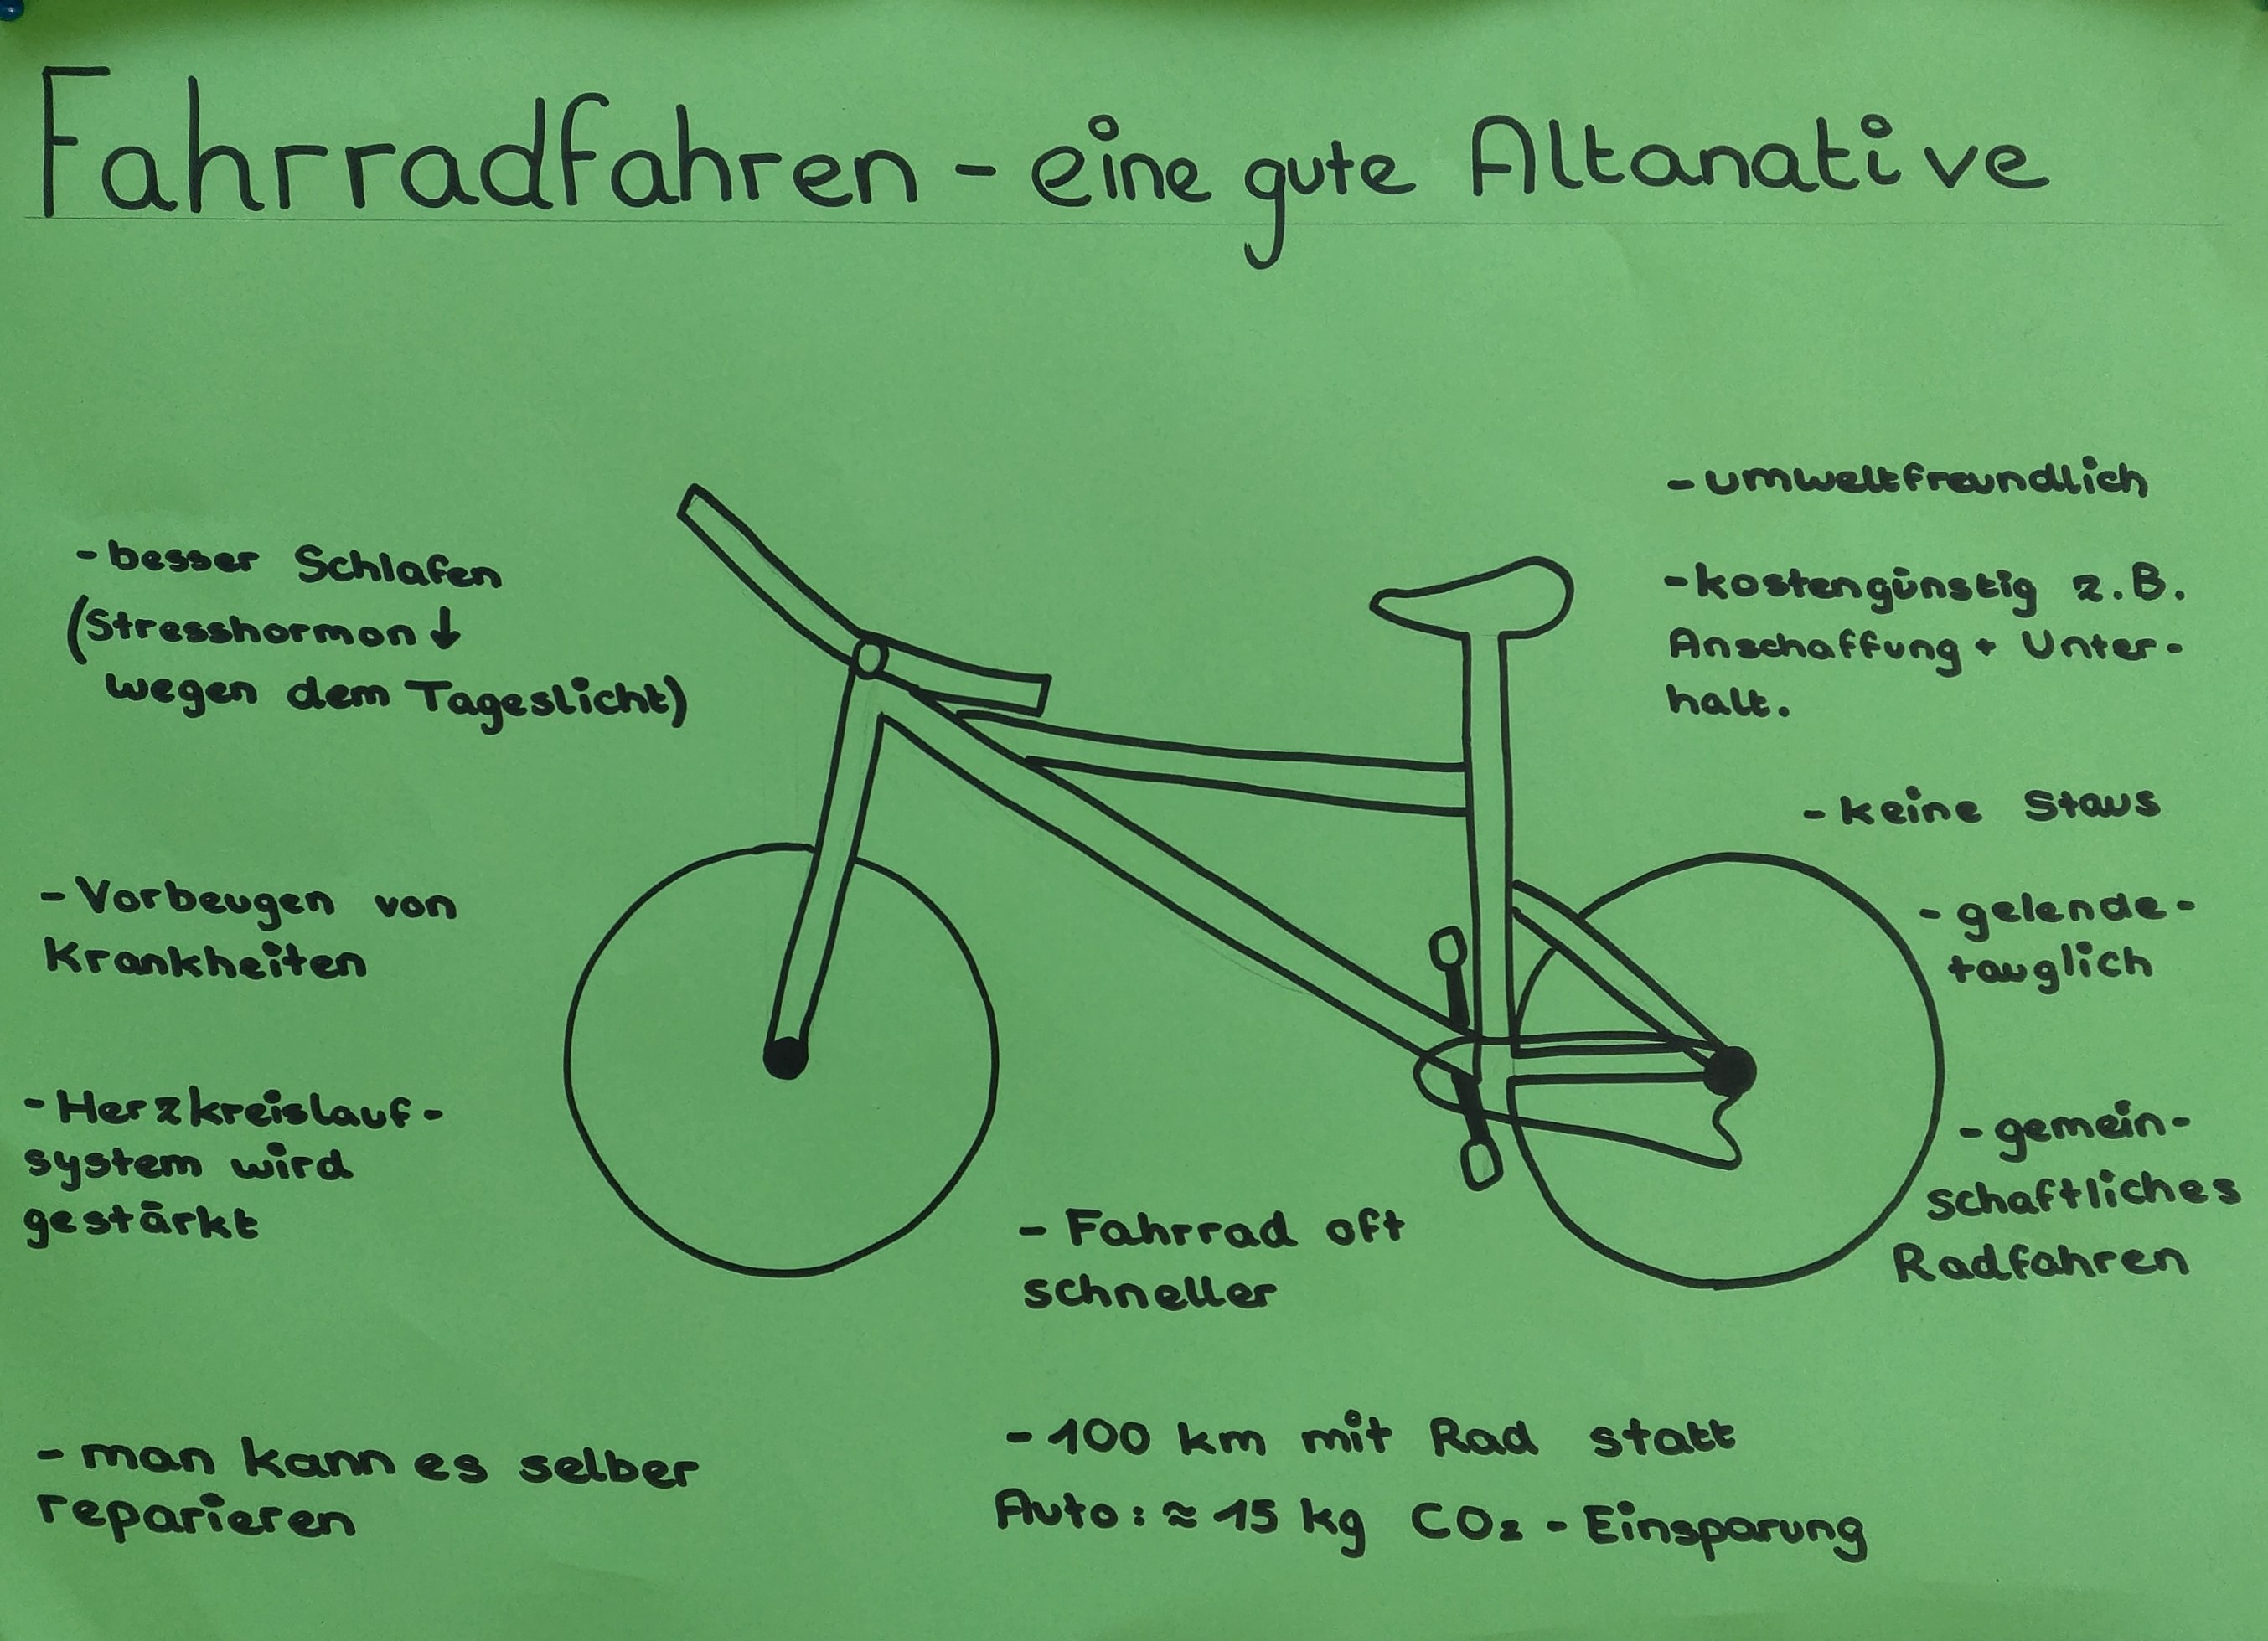 Fahrradfahren - eine gute Altanative
- besser Schlafen
(Stresshormon ↓
wegen dem Tageslicht)
- Vorbeugen von
Krankheiten
- Herzkreislauf-
system wird
gestärkt
- man kann es selber
reparieren
- Fahrrad oft
schneller
- 100 km mit Rad statt
Auto: ≈ 15 kg CO₂ - Einsparung
- umweltfreundlich
- kostengünstig z.B.
Anschaffung + Unter-
halt.
- keine Staus
- gelende-
tauglich
- gemein-
schaftliches
Radfahren